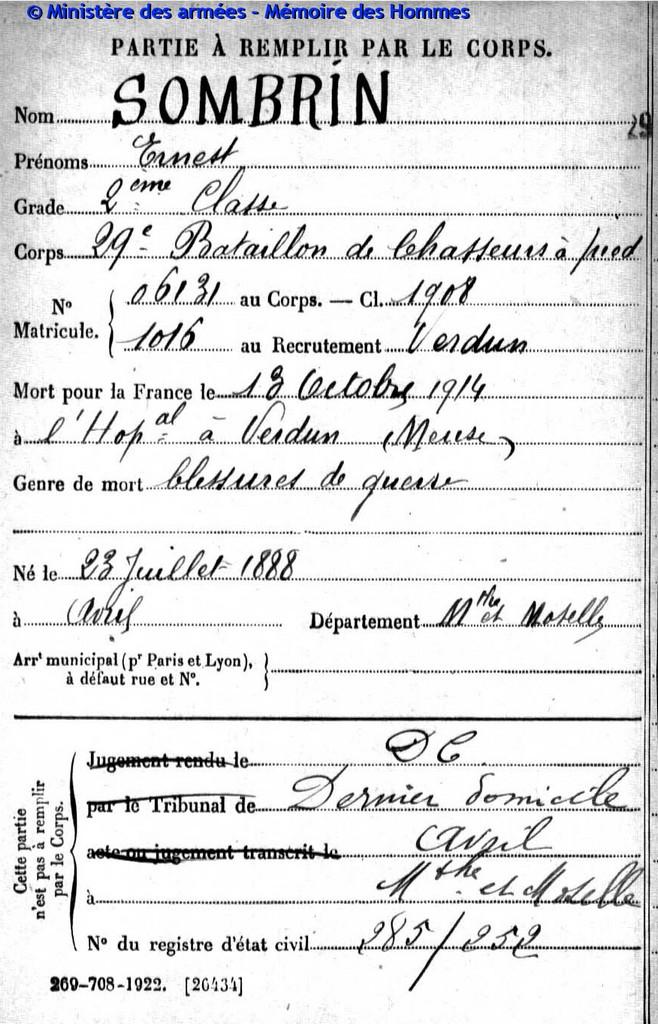 © Ministère des armées - Mémoire des Hommes
PARTIE À REMPLIR PAR LE CORPS.
Nom SOMBRIN
29
Prénoms Ernest
Grade 2ème Classe
Corps 29e Bataillon de Chasseurs à pied
No Matricule. { 06131 au Corps. — Cl. 1908
1016 au Recrutement Verdun
Mort pour la France le 13 Octobre 1914
à l'Hopal à Verdun (Meuse)
Genre de mort blessures de guerre
Né le 23 Juillet 1888
à Avril Département Mthe et Moselle
Arrt municipal (pr Paris et Lyon),
à défaut rue et No.
Cette partie
n'est pas à remplir
par le Corps.
Jugement rendu le DC
par le Tribunal de Dernier domicile
acte ou jugement transcrit le Avril
à Mthe et Moselle
No du registre d'état civil 285/252
269-708-1922. [26434]